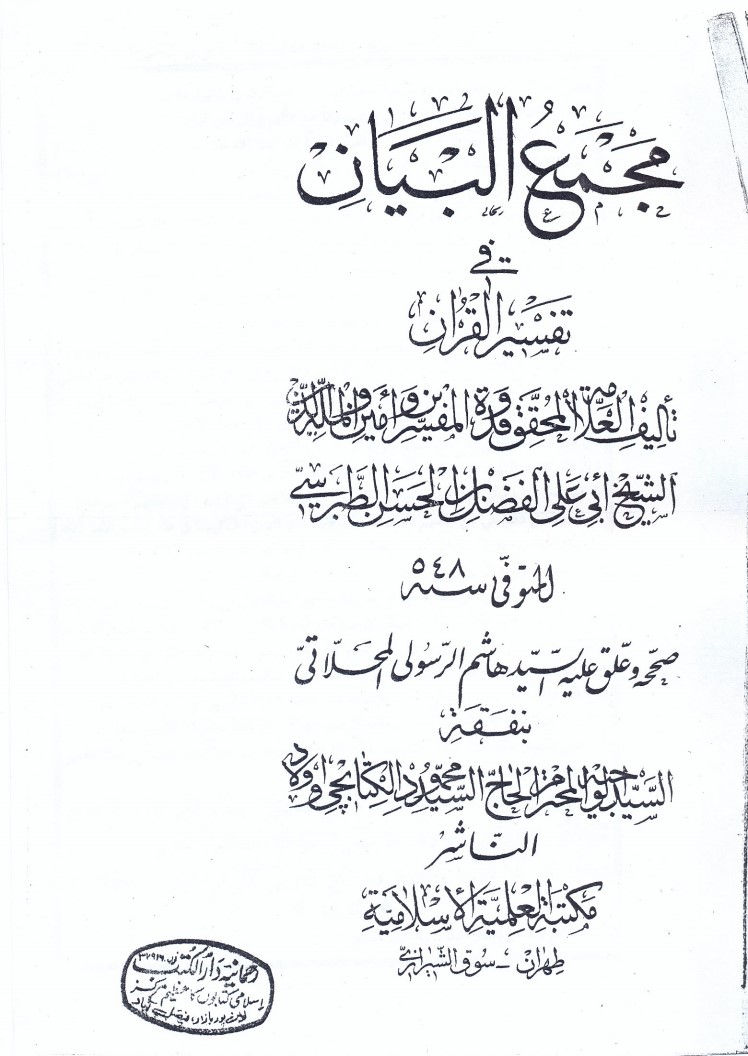 مجمع البيان
في
تفسير القرآن
تأليف العلامة المحقق قدوة المفسرين وأمين الملة والدين
الشيخ أبي علي الفضل بن الحسن الطبرسي
المتوفى سنه ٥٤٨
صححه وعلق عليه السيد هاشم الرسولي المحلاتي
بنفقة
السيد الوجيه المحترم الحاج السيد محمود الكتابچي وأولاده
الناشر
مكتبة العلمية الإسلامية
طهران - سوق الشيرازي
رحمانیہ دار الکتب
اسلامی کتابوں کا عظیم مرکز
بازار، فیصل آباد